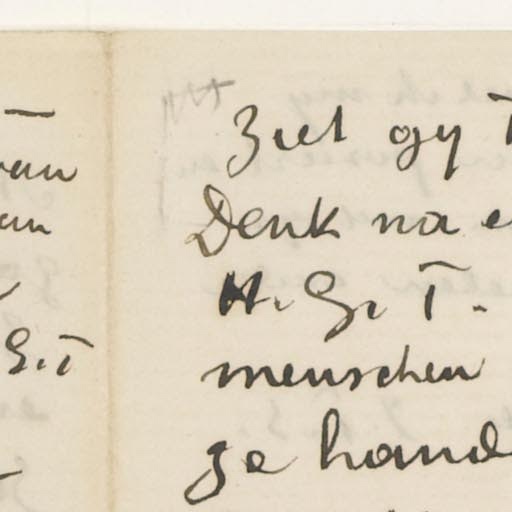 van
an
G.T
Ziet gy T
Denk na e
H. G. T.
menschen
ge hand